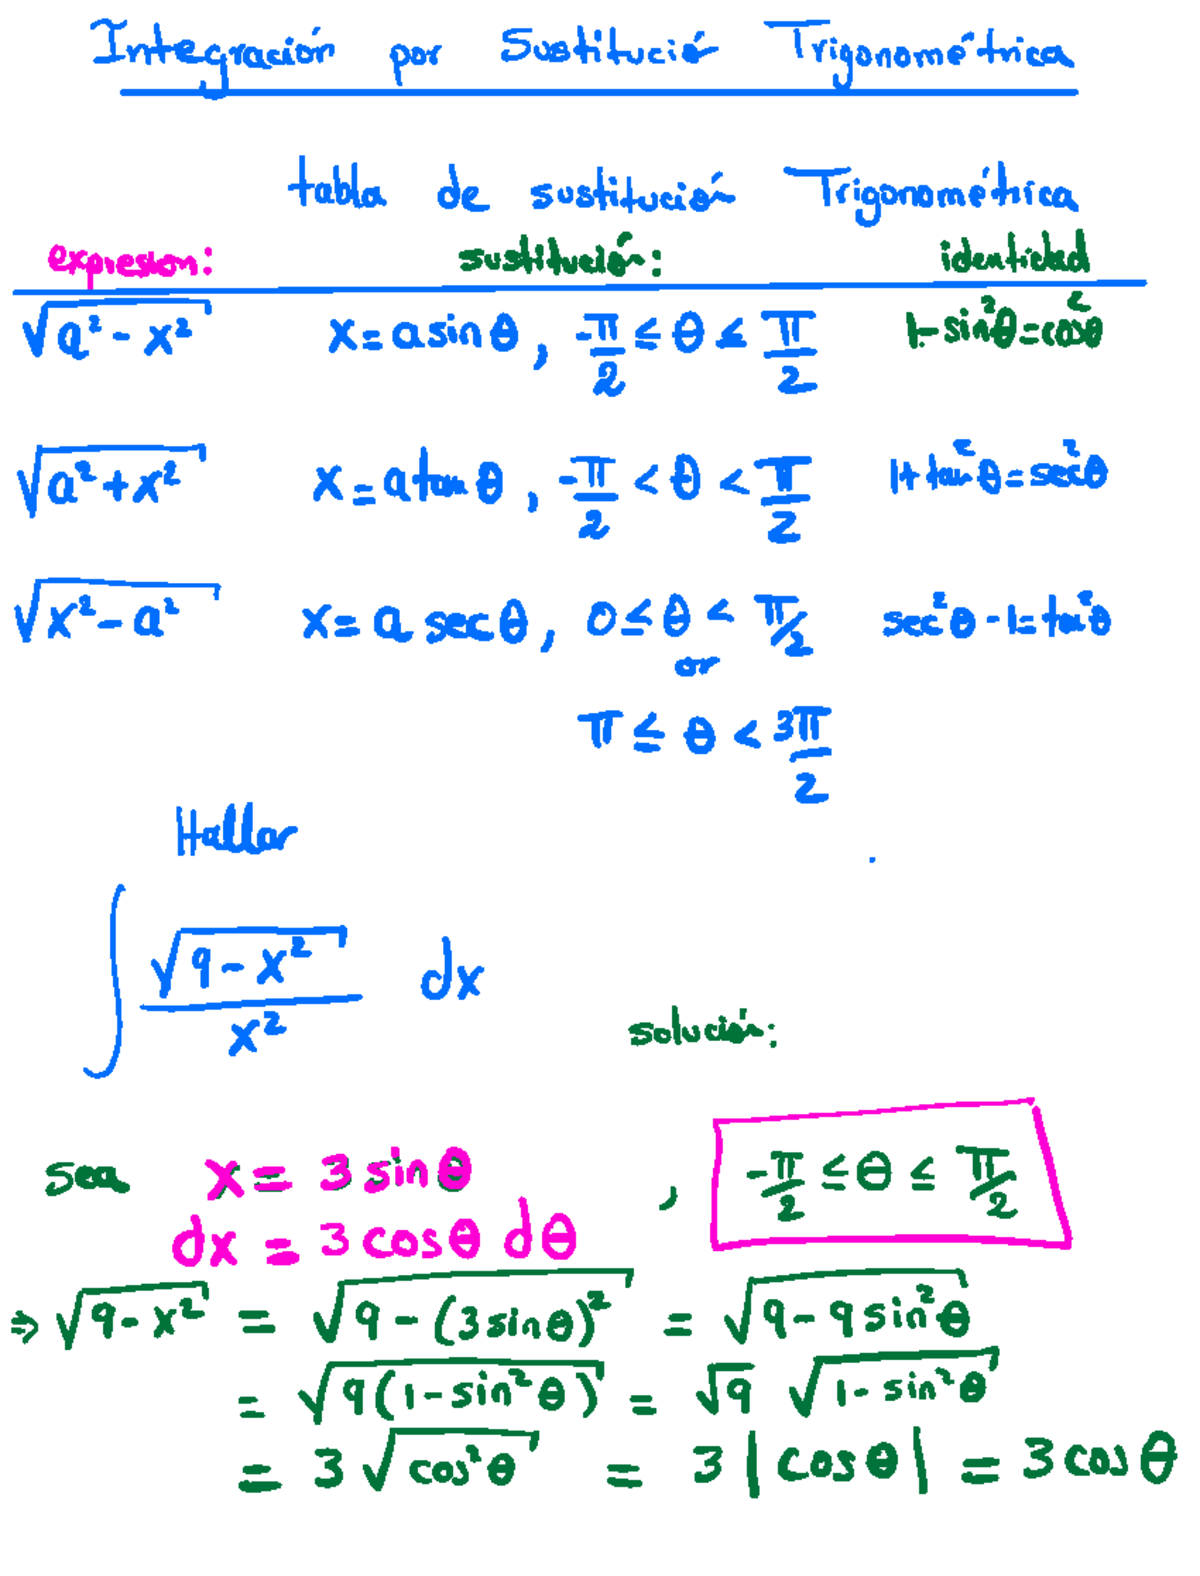 Integración por Sustitució Trigonométrica
tabla de sustitución Trigonométrica
expresion: sustitución: identidad
√(a² - x²) x = a sin θ, -π/2 ≤ θ ≤ π/2 1 - sin²θ = cos²θ
√(a² + x²) x = a tan θ, -π/2 < θ < π/2 1 + tan²θ = sec²θ
√(x² - a²) x = a sec θ, 0 ≤ θ < π/2 sec²θ - 1 = tan²θ
or
π ≤ θ < 3π/2
Hallar
∫ √(9 - x²)/x² dx
solución:
sea x = 3 sin θ , -π/2 ≤ θ ≤ π/2
dx = 3 cos θ dθ
⇒ √(9 - x²) = √(9 - (3 sin θ)²) = √(9 - 9 sin²θ)
= √(9(1 - sin²θ)) = √9 √(1 - sin²θ)
= 3 √(cos²θ) = 3 |cos θ| = 3 cos θ